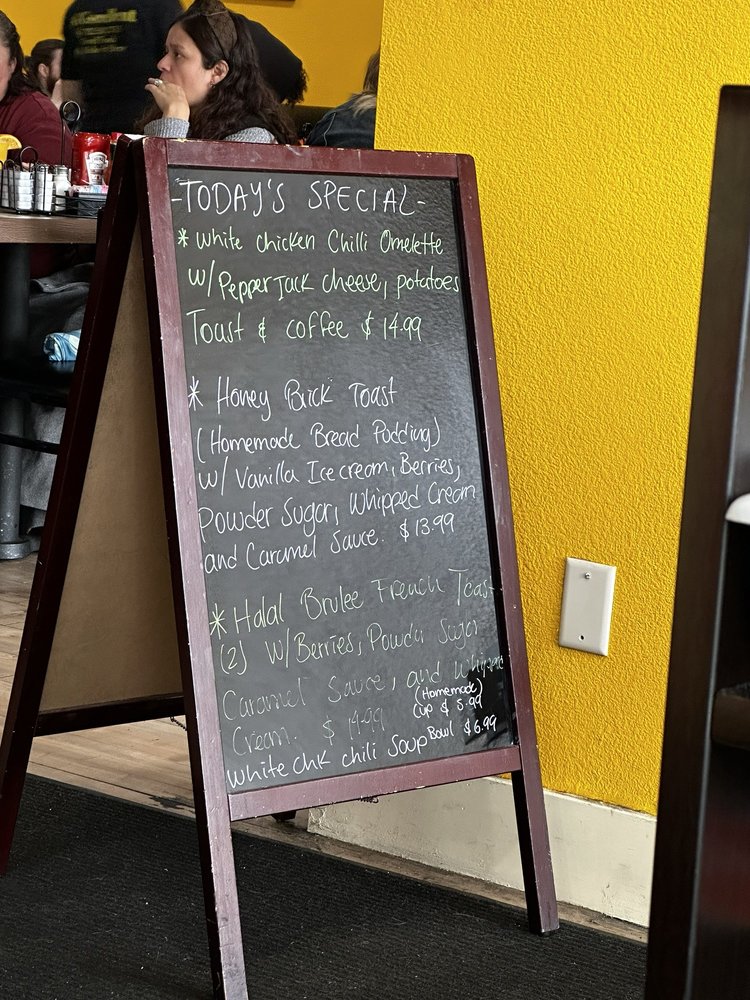 -TODAY'S SPECIAL-
* White chicken Chilli Omelette
w/ Pepper Jack cheese, potatoes
Toast & coffee $14.99
* Honey Brick Toast
(Homemade Bread Pudding)
w/ Vanilla Ice cream, Berries,
Powder Sugar, Whipped Cream
and Caramel Sauce. $13.99
* Halal Brulee French Toast
(2) w/ Berries, Powder Sugar
Caramel Sauce, and Whipped
Cream. $14.99
(Homemade)
Cup $5.99
White chk chili Soup Bowl $6.99
HEINZ